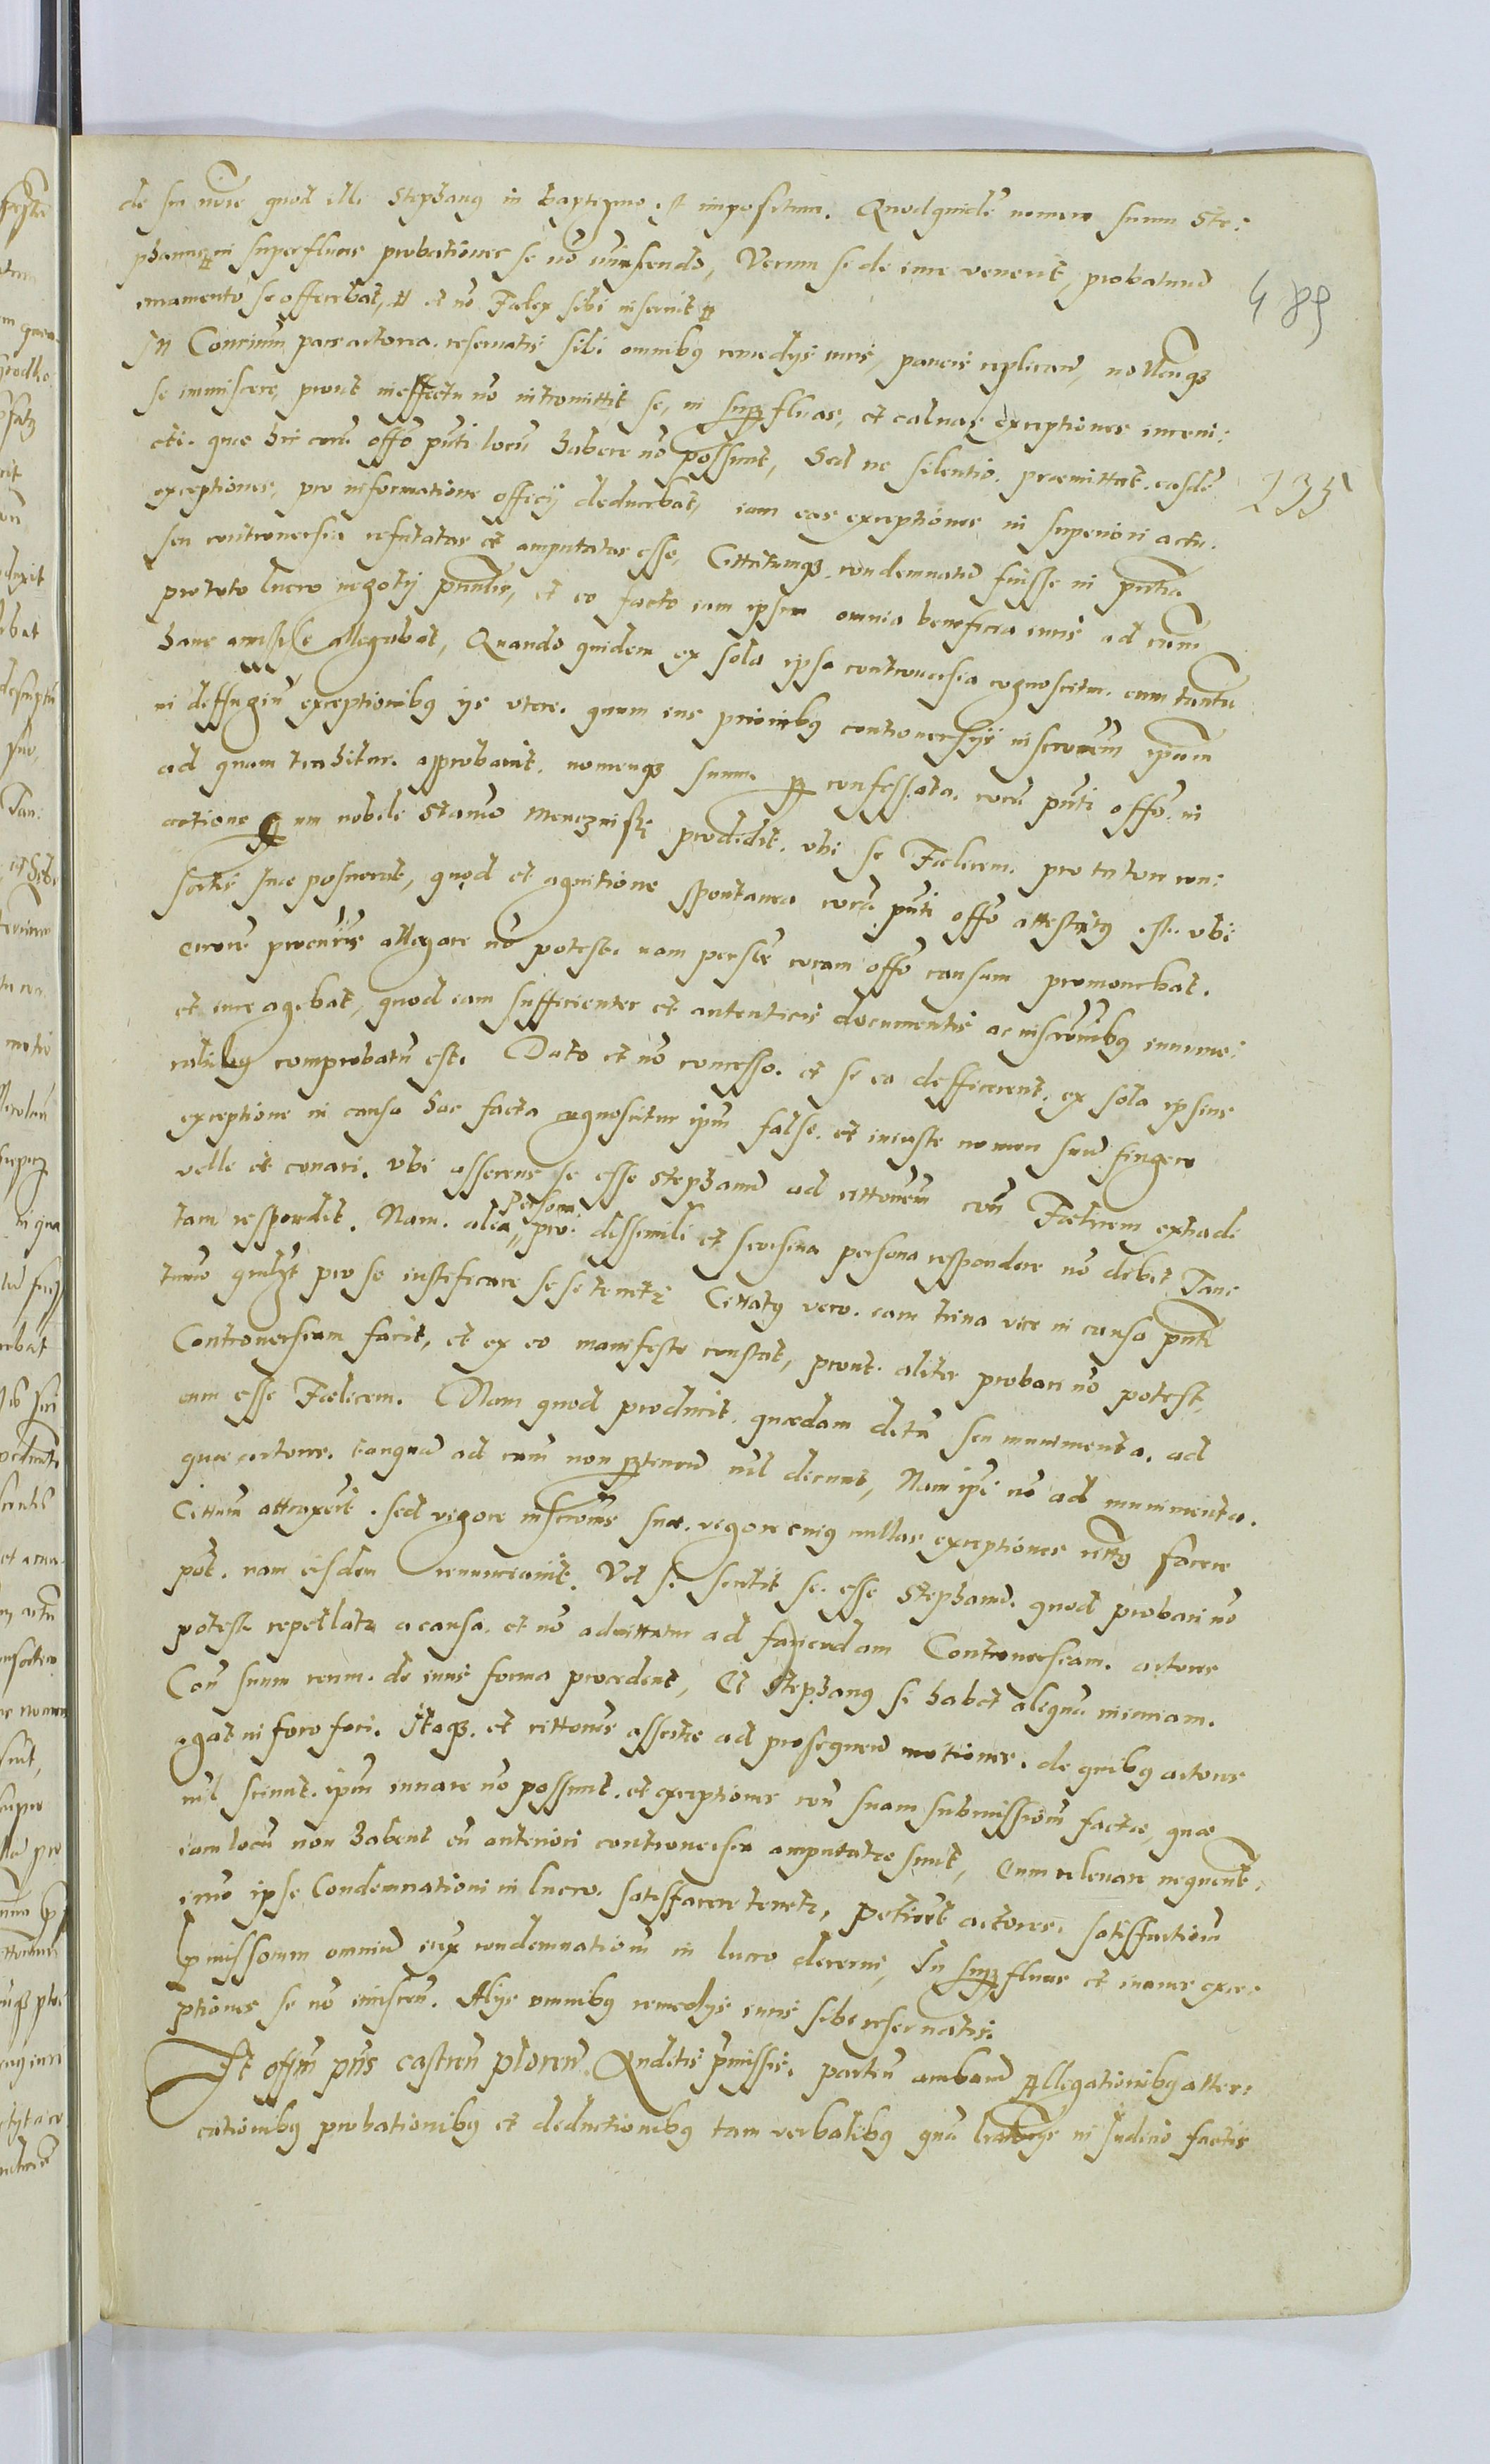 de suo nomine quod illi Stephanus in baptizmo est impositum. Quodquidem nomen suum Ste:
phanus in superfluas probationes se non immisendo, Verum si de iure venerit, probatum
iuramento se offerebat, et non Fælex sibi inseruit
In Contrarium pars actorea. reseruatis sibi omnibus remedys iuris, paucis replicand, nollensque
se immiscere, prout in effectu non intromittit se, in superfluas, et calvas exceptiones inveni:
eti. quæ hic coram offo pnti locum habere non possunt, Sed ne silentio. præmittat. easdem
exceptiones, pro informatione officij deducebat, iam eas exceptiones in superiori actu.
seu controuersia refutatas et amputatas esse, Cittatumque. condemnatum fuisse in pntia
pro toto lucro negotij pntialis, et eo facto iam ipsum omnia beneficia iuris ad causam
hanc amisisse allegabat, Quando quidem ex sola ipsa controuersia cognoscitur. eum tantum
in diffugium exceptionibus ijs utere. quum eas prioribus controuersijs inscriptionem ipsam
ad quam trahitur. approbauit. nomenque suum. per confessata. coram pnti offo. in
actione cum nobili Stanislao Mencznisky prodidit. ubi se Fælicem. pro tutore con:
sortis suæ posuerat, quod et agnitione spontanea coram pnti offo attestatus est. ubi
errorem procuratoris allegare non potest. nam personaliter coram offo causam promouebat.
et iure agebat, quod iam sufficienter et autenticis documentis ac inscriptionibus innume:
rabilibus comprobatum est. Dato et non concesso. et si ea defficerent. ex sola ipsius
exceptione in causa hac facta cognoscitur ipsum false. et iniuste nomen suum fingere
velle et conari. Vbi asserens se esse Stephanum ad cittationem contra Fælicem extradi
tam respondit. Nam. alia persona pro dissimili et seorsiua persona respondere non debet, Tan:
tummo quilzbet pro se iustificare sese tenetur Cittatus vero. iam trina vice in causa pnti
Controuersiam facit, et ex eo manifeste constat, prout. aliter probari non potest,
eum esse Fælicem. Nam quod producit. quædam dictum seu munimenta. ad
quæ actores. tanquam ad eum non pertinen nil dicunt, Nam ipsi non ad munimenta.
Cittatum attraxerunt. sed vigore inscriptionis suæ. vigore cuius nullas exceptiones cittatus facere
potest. nam eisdem renunciauit. Vel si sentit se. esse Stephanum. quod probari non
potest repellatur a causa. et non admittatur ad faciendam Controuersiam. actores
Contra suum reum. de iuris forma procedent, Et Stephanus si habet aliquam iniuriam.
agat in foro fori. Itaque. et cittationes assertæ ad prosequendum motiones. de quibus actores
nil sciunt. ipsum iuuare non possunt. et exceptiones contra suam submissionem factæ, quæ
iam locum non habent cum anteriori controuersia amputatæ sunt, Eum releuare nequeunt,
imo ipse Condemnationi in lucro. satisfacere tenetur, petierunt actores. satisfactionem
præmissorum omnium iuxta condemnationem in lucro decerni, In superfluas et inanes exce:
ptiones se non immiscen. Alijs omnibus remedijs iuris sibi reseruatis.
Et offm pns castren plocen. Auditis præmissis. partium ambarum Allegationibus alter:
cationibus probationibus et deductionibus tam verbalibus quam literalibus in Judicio factis
489
235